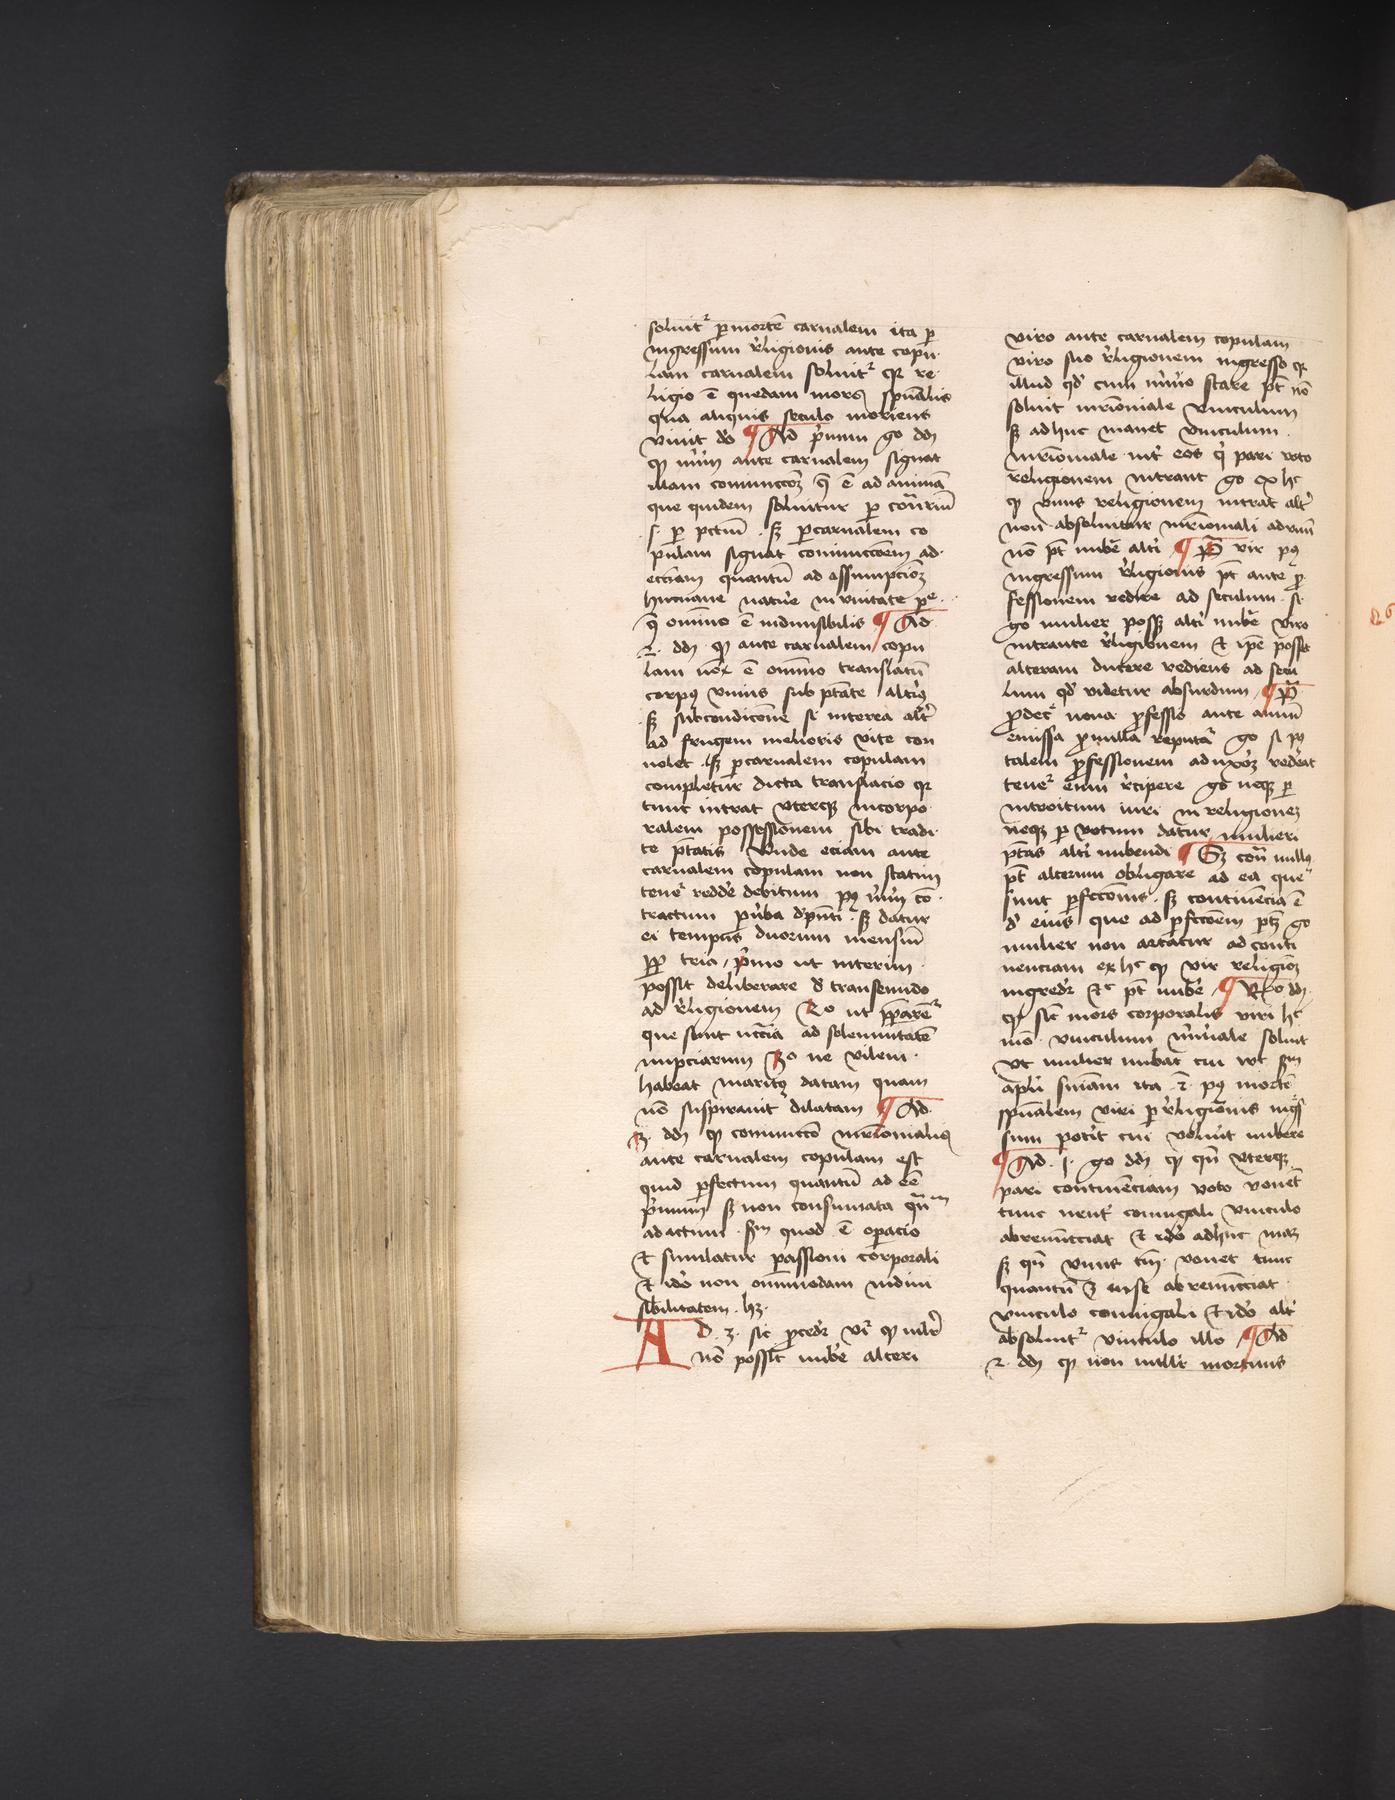 soluit² per mortē carnalem ita p̱
ingressum r̉ligionis ante copu
lam carnalem soluit² qr re
ligio ē quedam mors sp̄ualis
qua aliquis seculo moriens
viuit do ¶ Ad p̓mum go dd̄
ꝙ m̄im ante carnalem signat
illam coniunctōꝫ q̄ ē ad animā
que quidem soluitur p̱ cōtrariū
.s. p̱ pctm̄ . sꝫ p̱ carnalem co
pulam signat coniunctōem ad
ecciam quantū ad assumpciōꝫ
humane nature in vnitate p̱e
q̄ omīno ē indiuisibilis ¶ Ad
2. dd̄ ꝙ ante carnalem copu
lam nō ē omīno translatū
corpꝯ vnius sub ptāte altiꝯ
sꝫ sub condicione si interea alt̉
ad frugem melioris vite con
uolet . sꝫ p̱ carnalem copulam
completur dicta translacio qr
tunc intrat vterqꝫ in corpo
ralem possessionem sibi tradi
te ptātis Vnde eciam ante
carnalem copulam non statim
tene² redde debitum pꝯ m̄im cō
tractum p̱ v̓ba d̓ pn̄ti . sꝫ datur
ei tempus duorum mensiū
ꝓp tria / p̓mo ut interim
possit deliberare d̓ transeundo
ad r̉ligionem 2o ut p̄parēt²
que sunt ncc̄ia ad solennitatē
nupciarum 3o ne vilem
habeat maritꝯ datam quam
nō suspirauit dilatam ¶ Ad
3. dd̄ ꝙ coniunctō mr̄imonialis
ante carnalem copulam est
quid p̱fectum quantū ad eē
p̓mum sꝫ non consumata qūm
ad actum . sm̄ quod ē op̱acio
⁊ similatur passioni corporali
⁊ ido non omnimodam indiui
sibilitatem . hꝫ
AD . 3. sic ꝓcedr̉ vr̄ ꝙ mlr̉
nō possit nube alteri
viro ante carnalem copulam
viro suo r̉ligionem ingresso qr
illud qd̓ cum m̄imo stare pt̄ nō
soluit mr̄imoniale vinculum
sꝫ adhuc manet vinculum
mr̄imoniale int̓ eos q̓ pari voto
religionem intrant go ex hͨ
ꝙ vnus religionem intrat alt̉
non absoluitur mr̄imoniali ad vinc̄
nō pt̄ nubē alti ¶ P̄ vir pꝯ
ingressum r̉ligionis pt̄ ante ꝓ
fessionem redire ad seculum . si
go mulier possꝫ alti nubē viro
intrante r̉ligionem ⁊ ipē posset
alteram ducere rediens ad secu
lum qd̓ videtur absurdum ¶ P̄
ꝓ dec̉ noua ꝓfessio ante annū
emissa ꝓ nulla reputa² go si pꝯ
talem ꝓfessionem ad uxōꝫ redeat
tene² eum r̉cipere go neqꝫ p̱
introitum viri in religionem
neqꝫ p̱ votum datur mulieri
ptās alti nubendi ¶ Sꝫ con̄ nullꝯ
pt̄ alterum obligare ad ea que
sunt p̱fcc̄onis . sꝫ continēcia ē
d̓ eius que ad p̱fcc̄oem ptꝫ go
mulier non artatur ad conti
nenciam ex hͨ ꝙ vir religiōꝫ
ingredr̉ ⁊ͨ pt̄ nube ¶ R̄o dd̄
ꝙ sic̄ mors corporalis viri hͨ
mō vinculum m̄iale soluit
vt mulier nubat cui wlt sm̄
apl̄i sniām ita ⁊ pꝯ mortē
sp̄ualem viri p̱ r̉ligionis ing̉s
sum poterit cui voluit nubere
¶ Ad .1. go dd̄ ꝙ qn̄ vterqꝫ
pari continēciam voto vouet
tunc neut̓ coniugali vinculo
abrenūcciat ⁊ ido adhuc manꝫ
sꝫ qn̄ vnus tm̄ vouet tunc
quantū ē in se abrenūcciat
vinculo coniugali ⁊ ido alt̓
absoluit² vinculo illo ¶ Ad
2. dd̄ ꝙ non intllr̉ mortuus